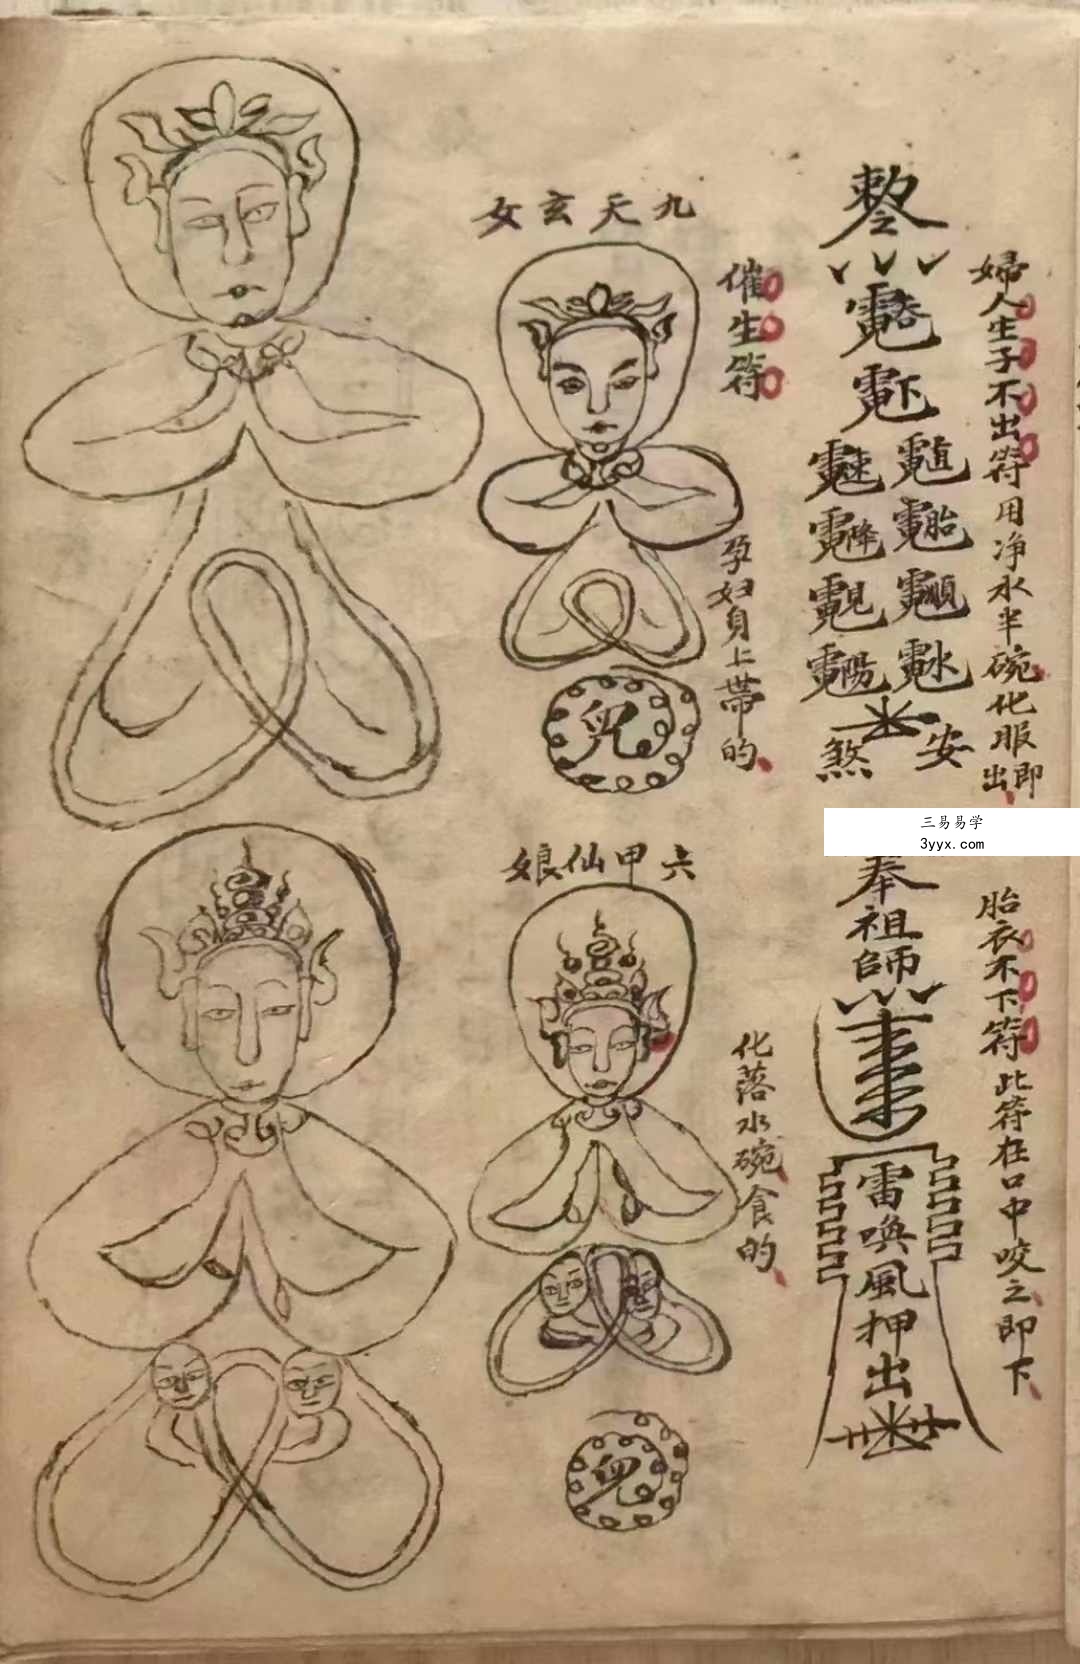 婦人生子不出符用净水半碗化服即出
敕令
下
速 直
降 胎
見 順
陽 水
煞 安
催生符
九天玄女
孕妇身上带的
三易易学
3yyx.com
胎衣不下符此符在口中咬之即下
奉
祖
師
雷
唤
風
押
出
化落水碗食的
六甲仙娘